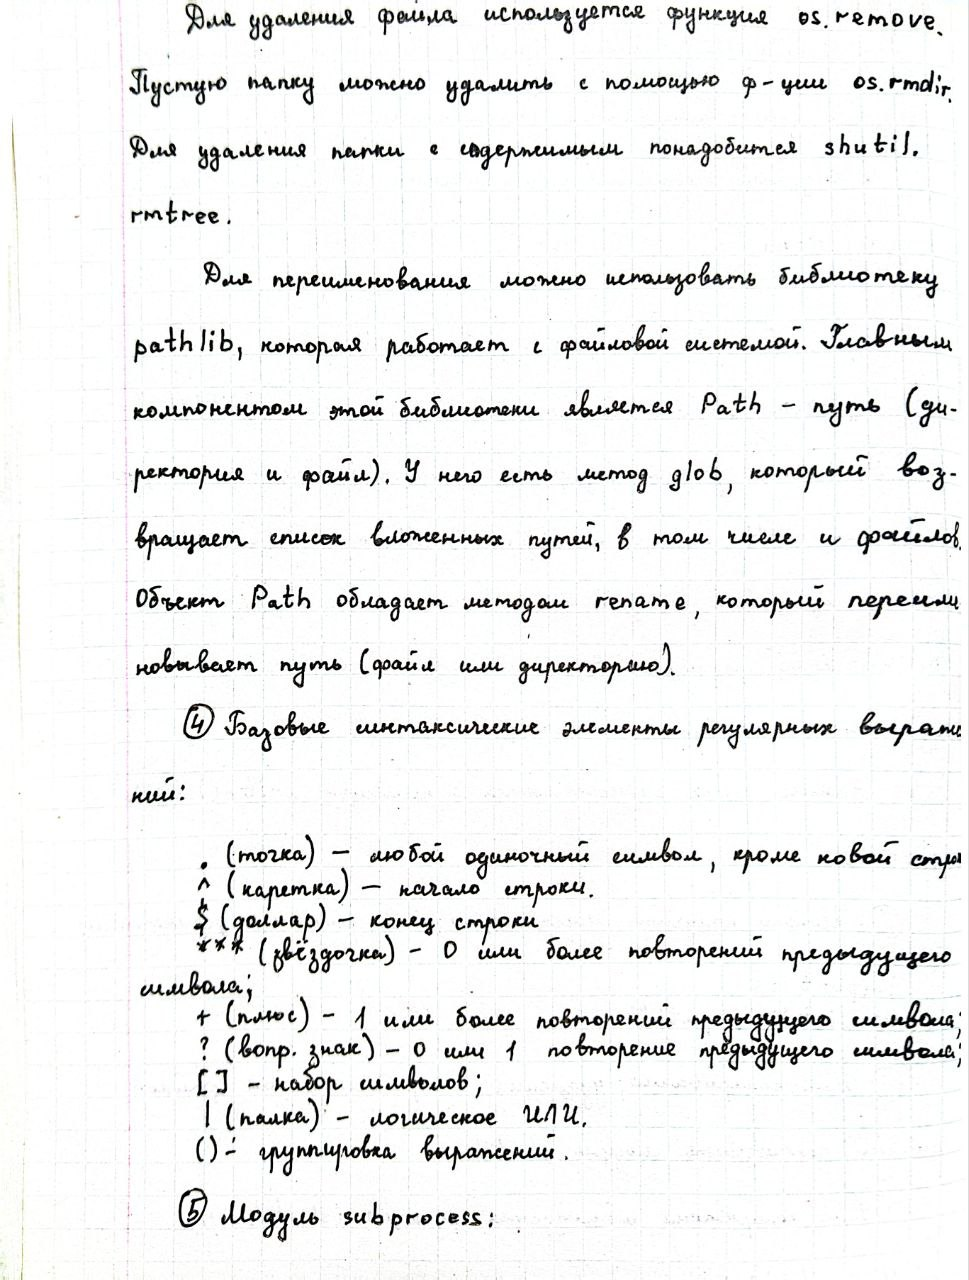 Для удаления файла используется функция os.remove.
Пустую папку можно удалить с помощью ф-ции os.rmdir.
Для удаления папки с содержимым понадобится shutil.
rmtree.
Для переименования можно использовать библиотеку
pathlib, которая работает с файловой системой. Главным
компонентом этой библиотеки является Path – путь (ди-
ректория и файл). У него есть метод glob, который воз-
вращает список вложенных путей, в том числе и файлов.
Объект Path обладает методом rename, который переиме
новывает путь (файл или директорию).
④ Базовые синтаксические элементы регулярных выраже
ний:
. (точка) – любой одиночный символ, кроме новой стро
^ (каретка) – начало строки.
$ (доллар) – конец строки
*** (звёздочка) – 0 или более повторений предыдущего
символа;
+ (плюс) – 1 или более повторений предыдущего символа;
? (вопр. знак) – 0 или 1 повторение предыдущего символа;
[ ] – набор символов;
| (палка) – логическое ИЛИ.
() – группировка выражений.
⑤ Модуль subprocess: